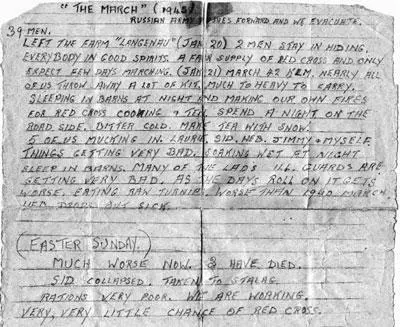 "THE MARCH" (1945)
RUSSIAN ARMY MOVES FORWARD AND WE EVACUATE.
39 MEN.
LEFT THE FARM "LANGENAU" (JAN 20) 2 MEN STAY IN HIDING.
EVERYBODY IN GOOD SPIRITS. A FAIR SUPPLY OF RED CROSS AND ONLY
EXPECT FEW DAYS MARCHING. (JAN 21) MARCH 42 KLM. NEARLY ALL
OF US THROW AWAY A LOT OF KIT. MUCH TO HEAVY TO CARRY.
SLEEPING IN BARNS AT NIGHT AND MAKING OUR OWN FIRES
FOR RED CROSS COOKING & TEA. SPEND A NIGHT ON THE
ROAD SIDE. BITTER COLD. MAKE TEA WITH SNOW.
5 OF US MUCKING IN. LAURIE, SID. NEB. JIMMY & MYSELF.
THINGS GETTING VERY BAD. SOAKING WET AT NIGHT
SLEEP IN BARNS. MANY OF THE LADS ILL. GUARDS ARE
GETTING VERY BAD. AS THE DAYS ROLL ON IT GETS
WORSE. EATING RAW TURNIPS. WORSE THAN 1940 MARCH
SICK.
EASTER SUNDAY.
MUCH WORSE NOW. 3 HAVE DIED.
SID COLLAPSED. TAKEN TO STALAG.
RATIONS VERY POOR. WE ARE WORKING.
VERY, VERY LITTLE CHANCE OF RED CROSS.